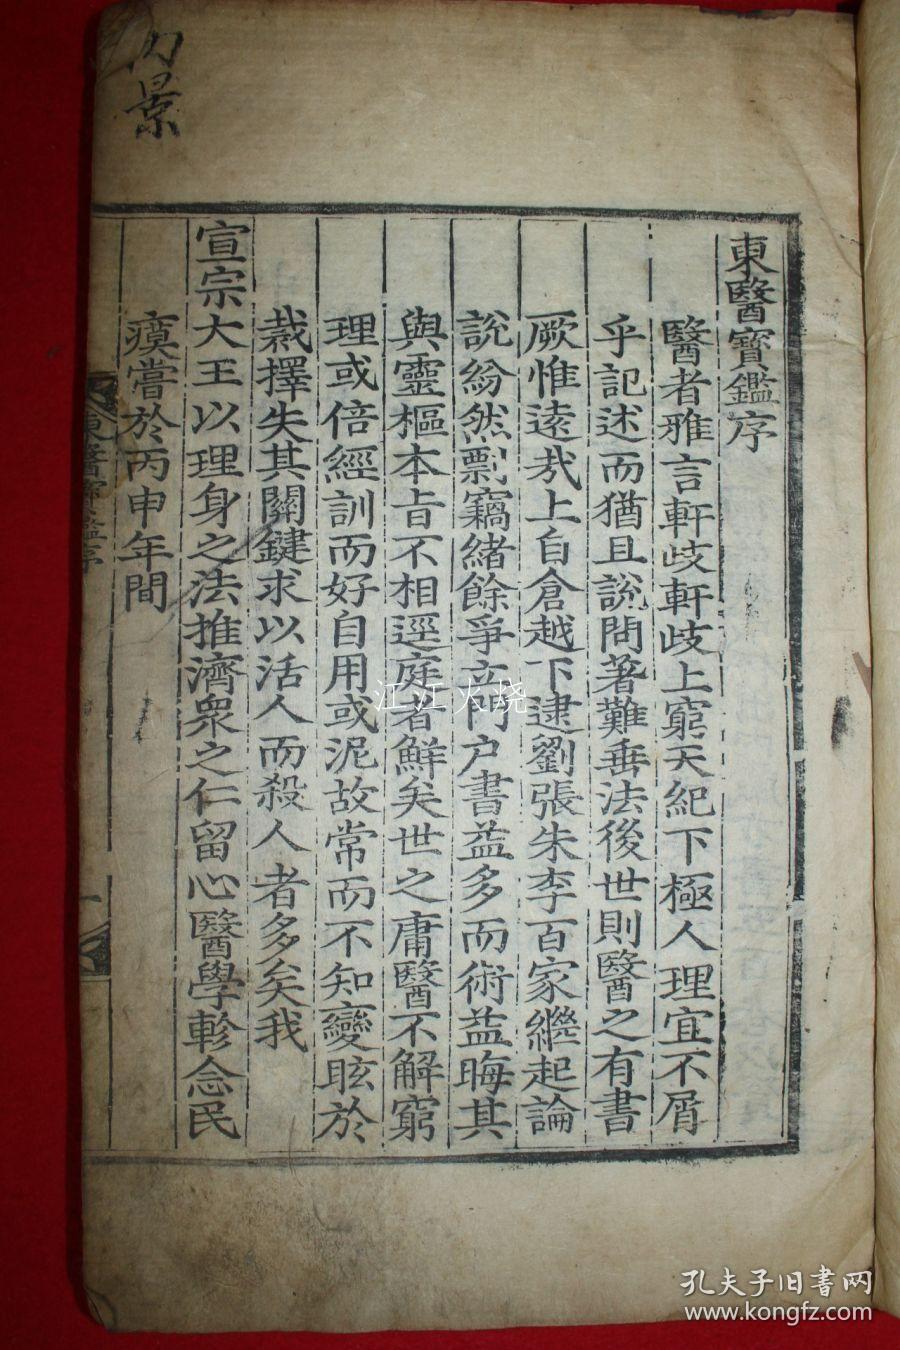 內景
東醫寶鑑序
醫者雅言軒歧軒歧上窮天紀下極人理宜不屑
乎記述而猶且說問著難垂法後世則醫之有書
厥惟遠㢤上自倉越下逮劉張朱李百家繼起論
說紛然剽竊緖餘爭立門户書益多而術益晦其
與靈樞本旨不相逕庭者鮮矣世之庸醫不解窮
理或倍經訓而好自用或泥故常而不知變眩於
裁擇失其關鍵求以活人而殺人者多矣我
宣宗大王以理身之法推濟衆之仁留心醫學軫念民
瘼嘗於丙申年間
東醫寶鑑序
一
江江火烧
孔夫子旧書网
www.kongfz.com